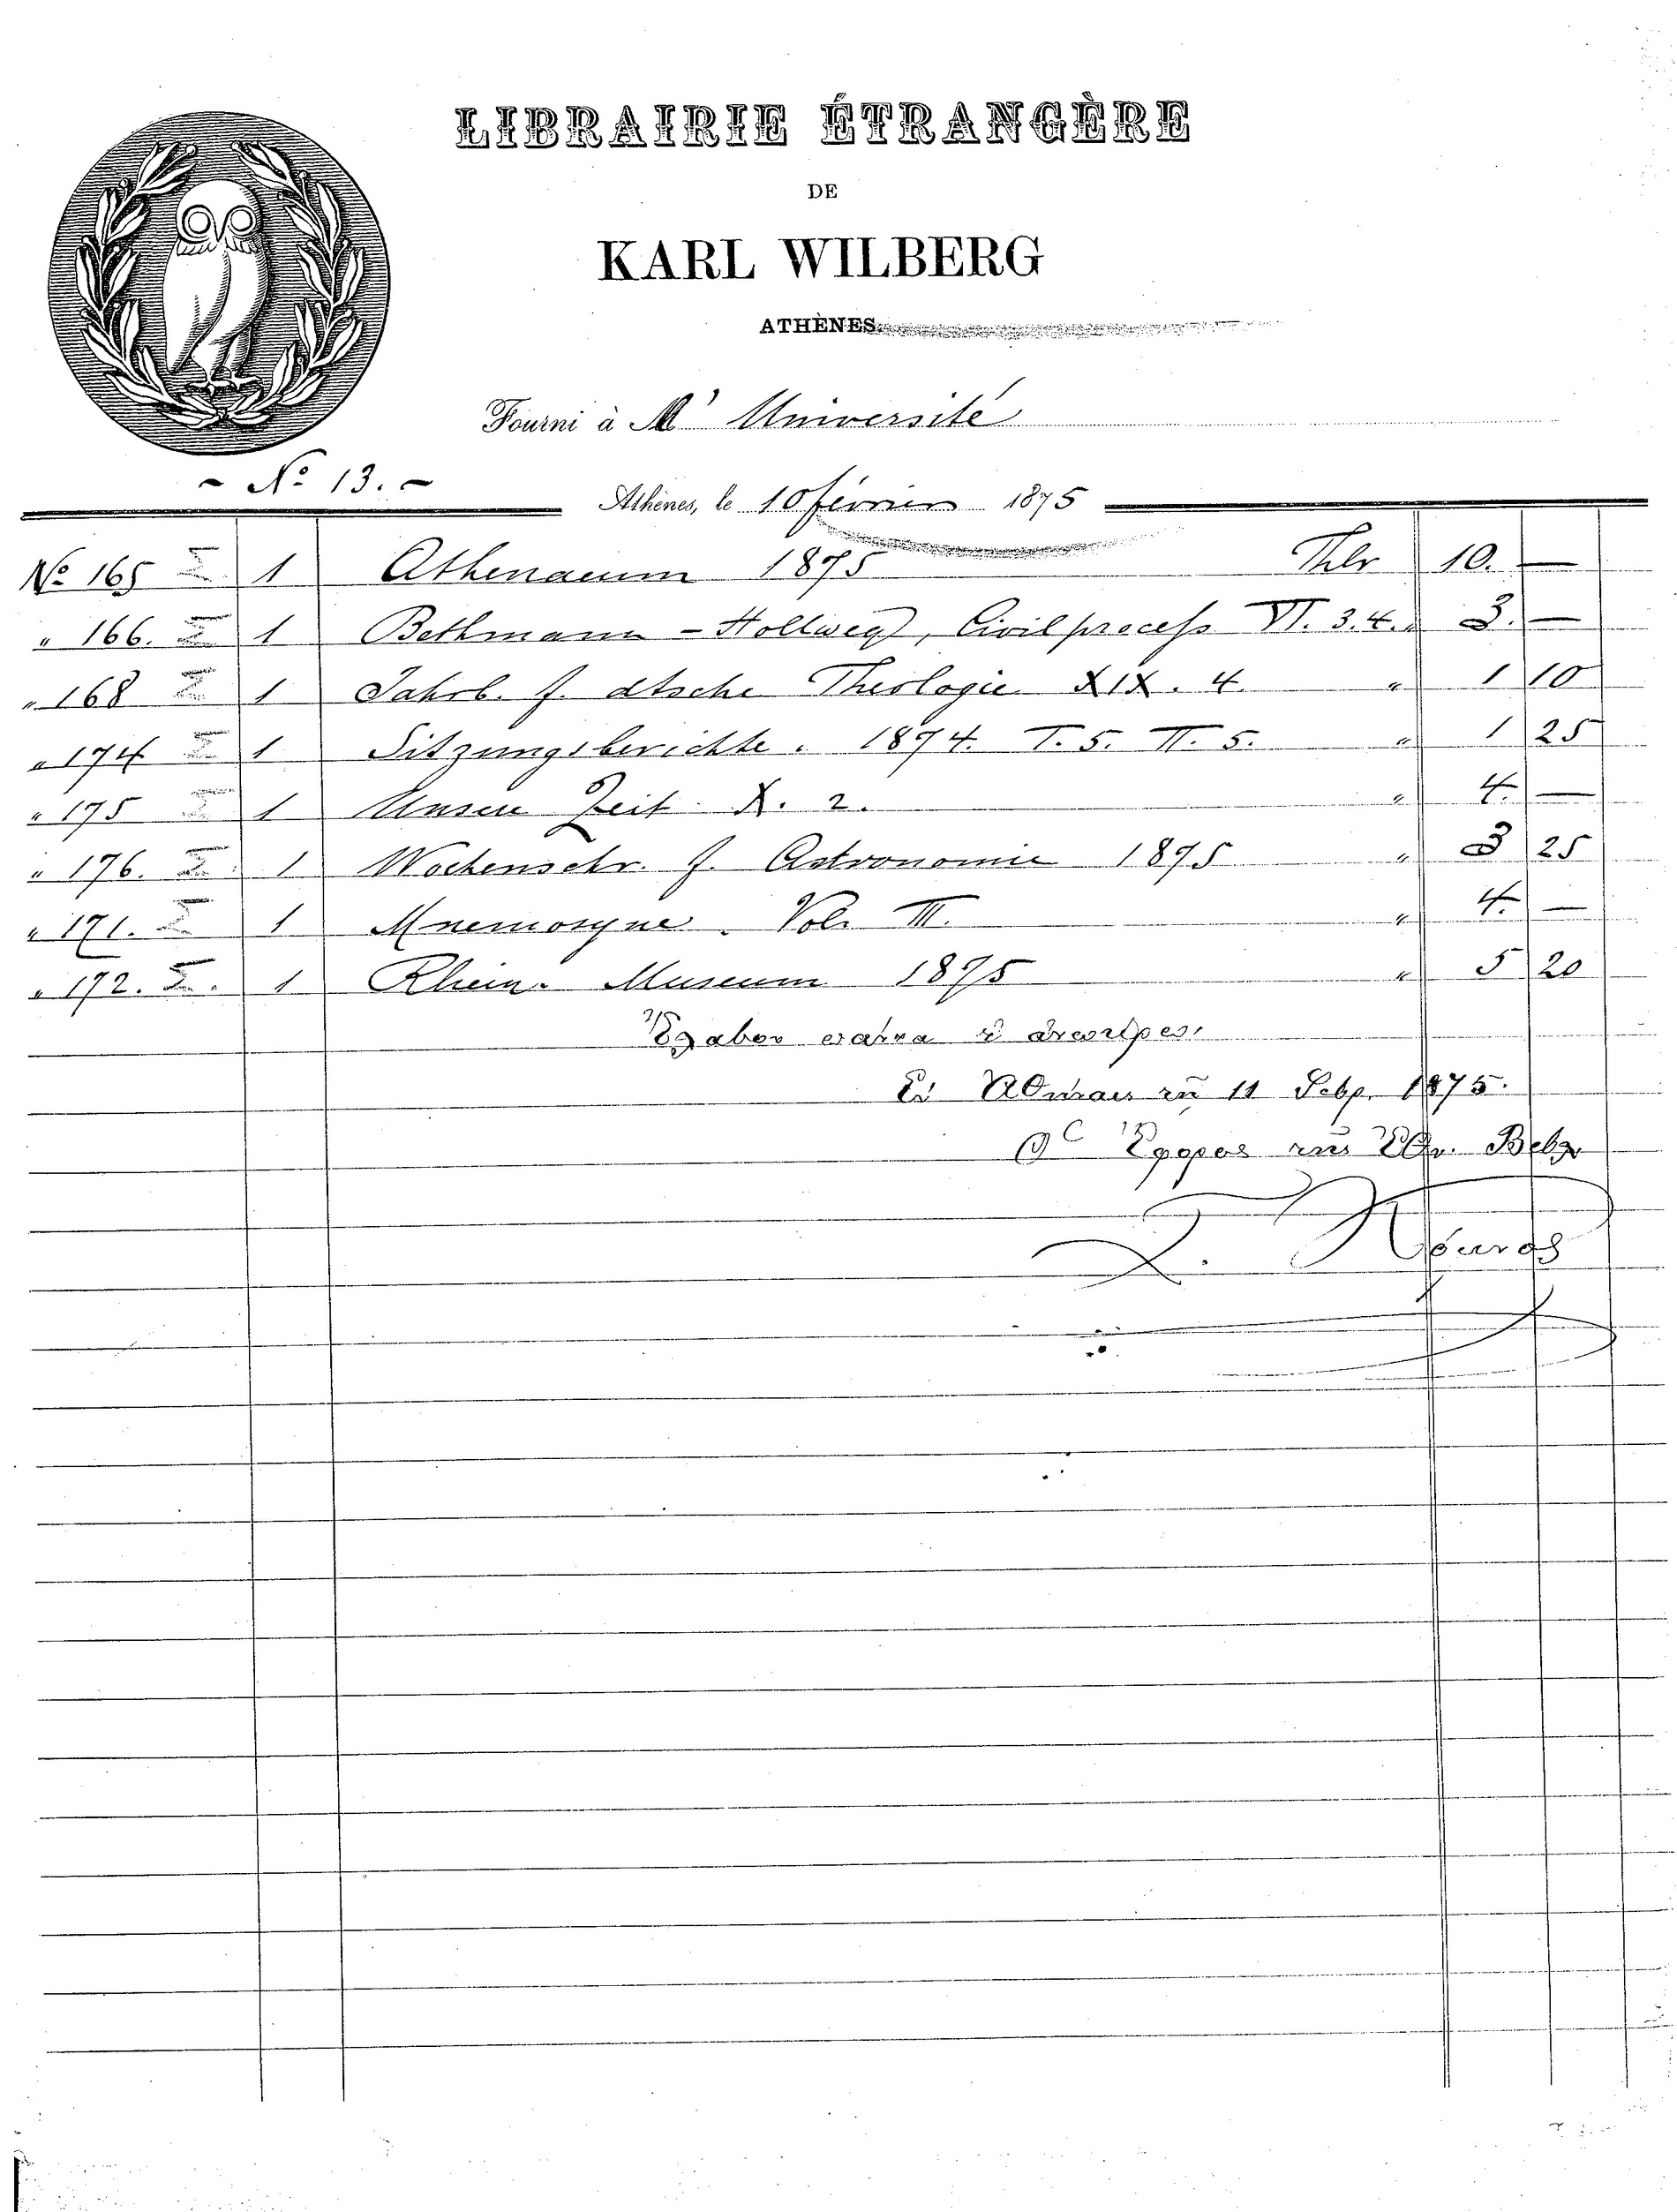 LIBRAIRIE ÉTRANGÈRE
DE
KARL WILBERG
ATHÈNES
Fourni à Mr Université
- No 13. -
Athènes, le 10 février 1875
No 165 1 Athenaeum 1875 Thlr 10. —
" 166. 1 Bethmann-Hollweg, Civilprocess VI. 3.4. " 3. —
" 168 1 Jahrb. f. dtsche Theologie XIX. 4. " 1 10
" 174 1 Sitzungsberichte. 1874. I. 5. II. 5. " 1 25
" 175 1 Unsere Zeit X. 2. " 4. —
" 176. 1 Wochenschr. f. Astronomie 1875 " 3 25
" 171. 1 Mnemosyne. Vol. III. " 4. —
" 172. 1 Rhein. Museum 1875 " 5 20
Ἔλαβον
Ἐν Ἀθήναις τῇ 11 Φεβρ. 1875.
Ὁ Ἔφορος τῆς Ἐθν. Βιβλ